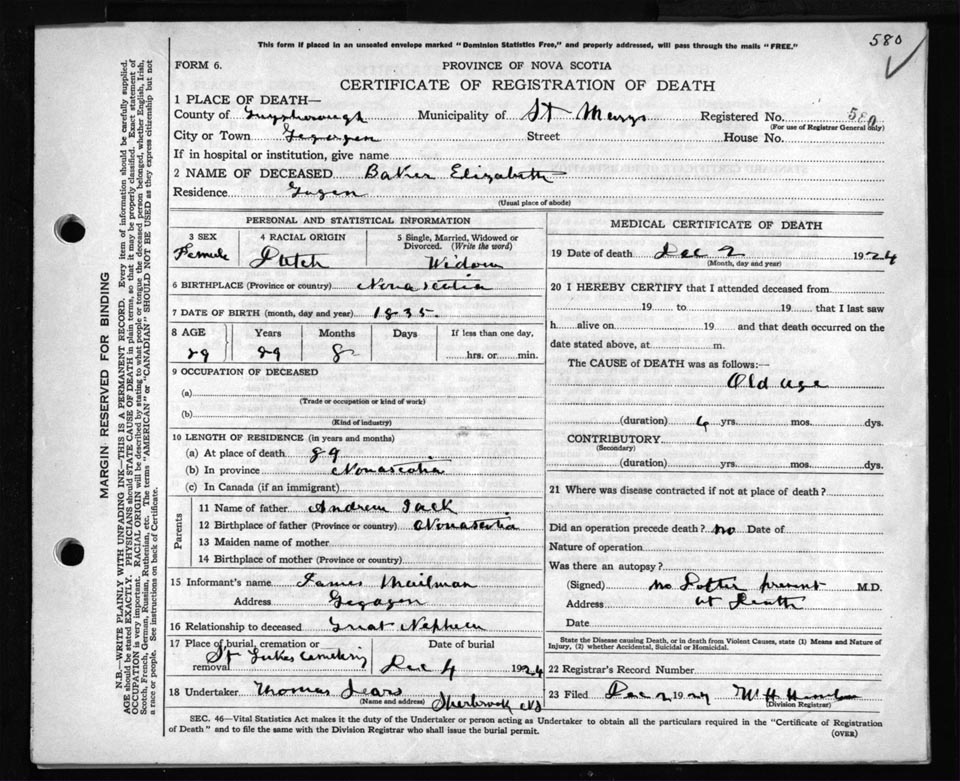 580
This form if placed in an unsealed envelope marked "Dominion Statistics Free," and properly addressed, will pass through the mails "FREE."
FORM 6.
PROVINCE OF NOVA SCOTIA
CERTIFICATE OF REGISTRATION OF DEATH
MARGIN RESERVED FOR BINDING
N.B.—WRITE PLAINLY WITH UNFADING INK—THIS IS A PERMANENT RECORD. Every item of information should be carefully supplied.
AGE should be stated EXACTLY. PHYSICIANS should STATE CAUSE OF DEATH in plain terms, so that it may be properly classified. Exact statement of
OCCUPATION is very important. RACIAL ORIGIN will be described by stating to what people or tongue the deceased person belonged, whether English, Irish,
Scotch, French, German, Russian, Ruthenian, etc. The terms "AMERICAN" or "CANADIAN" SHOULD NOT BE USED as they express citizenship but not
a race or people. See instructions on back of Certificate.
1 PLACE OF DEATH—
County of Guysborough Municipality of St Marys Registered No. 580
(For use of Registrar General only)
City or Town Street House No.
If in hospital or institution, give name
2 NAME OF DECEASED Baker Elizabeth
Residence
(Usual place of abode)
PERSONAL AND STATISTICAL INFORMATION
3 SEX Female
4 RACIAL ORIGIN Dutch
5 Single, Married, Widowed or Divorced. (Write the word) Widow
6 BIRTHPLACE (Province or country) Novascotia
7 DATE OF BIRTH (month, day and year) 1835
8 AGE Years Months Days If less than one day,
89 89 8 hrs. or min.
9 OCCUPATION OF DECEASED
(a)
(Trade or occupation or kind of work)
(b)
(Kind of industry)
10 LENGTH OF RESIDENCE (in years and months)
(a) At place of death 89
(b) In province Novascotia
(c) In Canada (if an immigrant)
Parents
11 Name of father Andrew Jack
12 Birthplace of father (Province or country) Novascotia
13 Maiden name of mother
14 Birthplace of mother (Province or country)
15 Informant's name James Mailman
Address
16 Relationship to deceased Great Nephew
17 Place of burial, cremation or removal St Lukes Cemetery
Date of burial Dec 4 1924
18 Undertaker Thomas Sears
(Name and address) Sherbrook NS
MEDICAL CERTIFICATE OF DEATH
19 Date of death Dec 2 1924
(Month, day and year)
20 I HEREBY CERTIFY that I attended deceased from
19 to 19 that I last saw
h alive on 19 and that death occurred on the
date stated above, at m.
The CAUSE of DEATH was as follows:—
Old age
(duration) 4 yrs. mos. dys.
CONTRIBUTORY
(Secondary)
(duration) yrs. mos. dys.
21 Where was disease contracted if not at place of death?
Did an operation precede death? no Date of
Nature of operation
Was there an autopsy?
(Signed) no present M.D.
Address at Death
Date
State the Disease causing Death, or in death from Violent Causes, state (1) Means and Nature of
Injury, (2) whether Accidental, Suicidal or Homicidal.
22 Registrar's Record Number
23 Filed Dec 2 1924 W H
(Division Registrar)
SEC. 46—Vital Statistics Act makes it the duty of the Undertaker or person acting as Undertaker to obtain all the particulars required in the "Certificate of Registration
of Death" and to file the same with the Division Registrar who shall issue the burial permit.
(OVER)